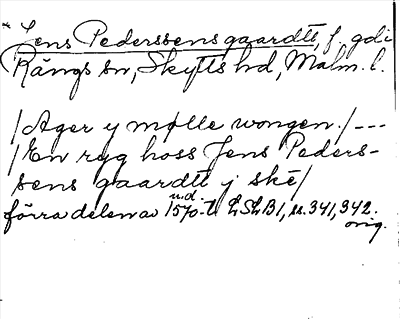 * Jens Pederssens gaardtt, f. gd i
Rängs sn, Skytts hd, Malm. l.
/Ager y mølle wongen./ ---
/En ryg hoss Jens Peders-
sens gaardtt j skē/
u.d.
förra delen av 1570-t. LSLB1, ss. 341, 342.
orig.